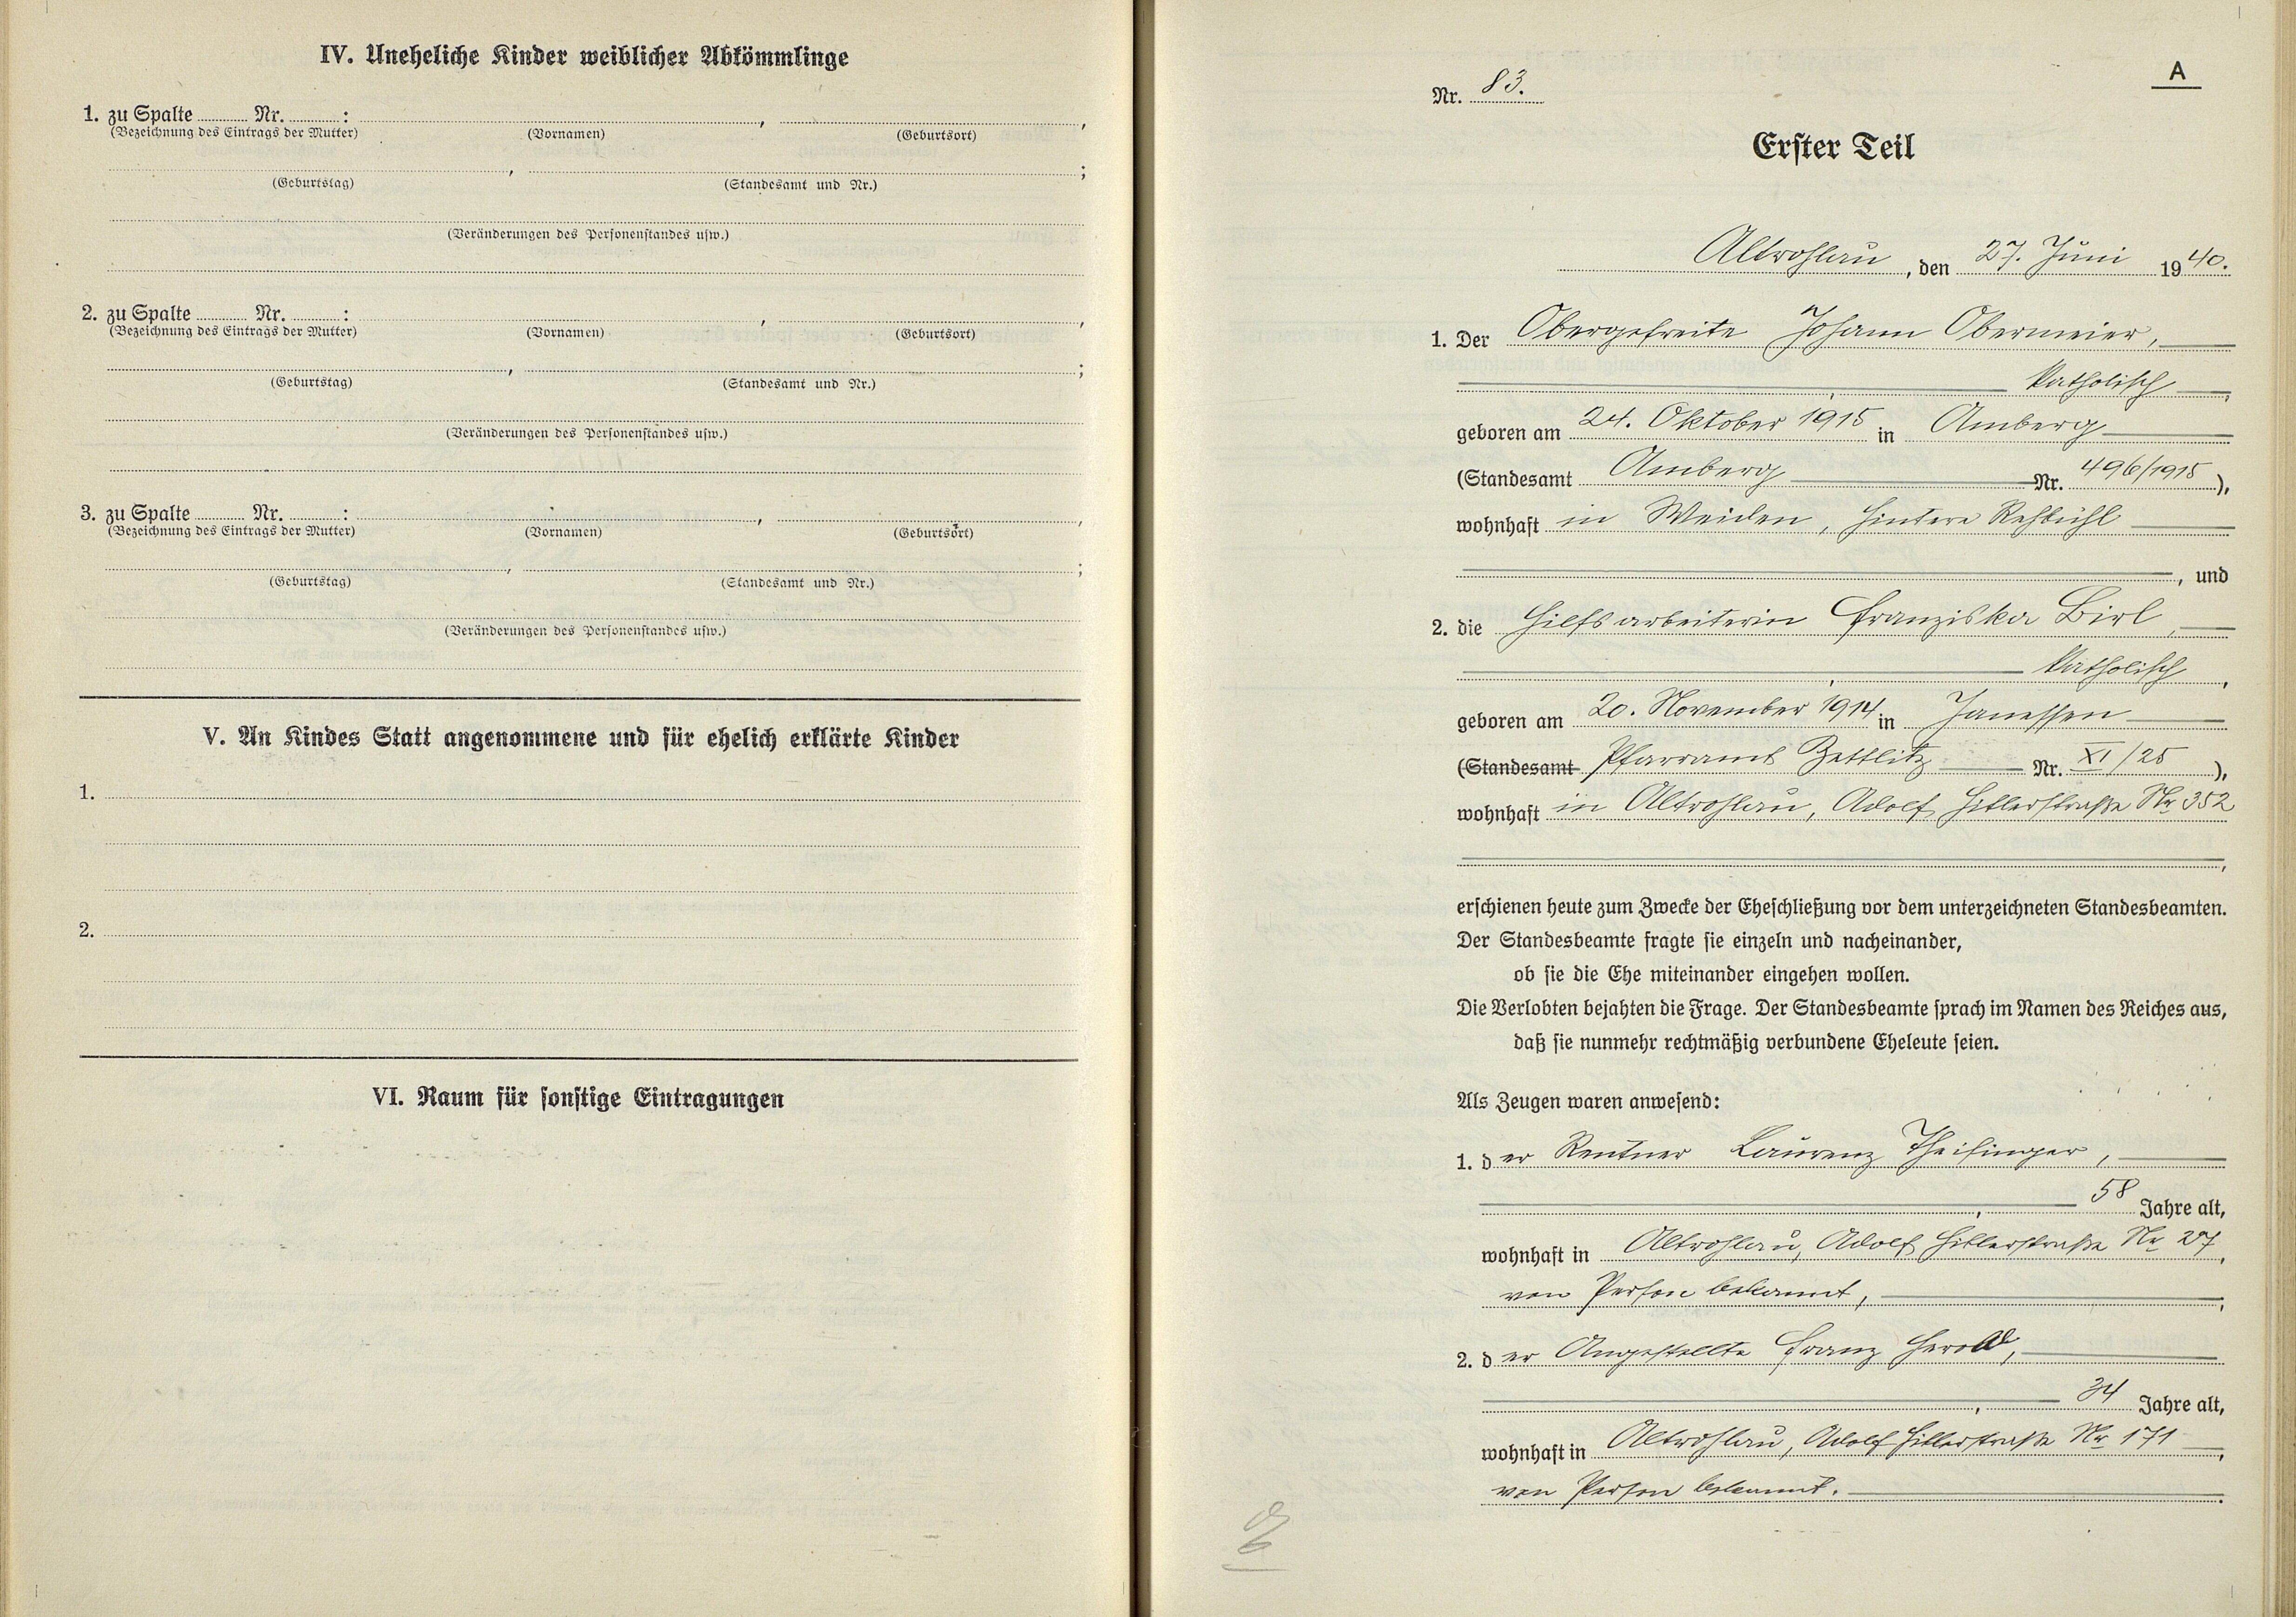 IV. Uneheliche Kinder weiblicher Abkömmlinge
1. zu Spalte ........ Nr. ........ : , ,
(Bezeichnung des Eintrags der Mutter) (Vornamen) (Geburtsort)
, ;
(Geburtstag) (Standesamt und Nr.)
(Veränderungen des Personenstandes usw.)
2. zu Spalte ........ Nr. ........ : , ,
(Bezeichnung des Eintrags der Mutter) (Vornamen) (Geburtsort)
, ;
(Geburtstag) (Standesamt und Nr.)
(Veränderungen des Personenstandes usw.)
3. zu Spalte ........ Nr. ........ : , ,
(Bezeichnung des Eintrags der Mutter) (Vornamen) (Geburtsort)
, ;
(Geburtstag) (Standesamt und Nr.)
(Veränderungen des Personenstandes usw.)
V. An Kindes Statt angenommene und für ehelich erklärte Kinder
1.
2.
VI. Raum für sonstige Eintragungen
A
Nr. 83.
Erster Teil
Altrohlau, den 27. Juni 1940.
1. Der Obergefreite Johann Obermeier,
katholisch,
geboren am 24. Oktober 1915 in Amberg
(Standesamt Amberg Nr. 496/1915),
wohnhaft in Weiden, Hintere Rehbühl
, und
2. die Hilfsarbeiterin Franziska Birl,
katholisch,
geboren am 20. November 1914 in Janessen
(Standesamt Pfarramt Zettlitz Nr. XI/25),
wohnhaft in Altrohlau, Adolf Hitlerstraße Nr 352
,
erschienen heute zum Zwecke der Eheschließung vor dem unterzeichneten Standesbeamten.
Der Standesbeamte fragte sie einzeln und nacheinander,
ob sie die Ehe miteinander eingehen wollen.
Die Verlobten bejahten die Frage. Der Standesbeamte sprach im Namen des Reiches aus,
daß sie nunmehr rechtmäßig verbundene Eheleute seien.
Als Zeugen waren anwesend:
1. der Rentner Laurenz Theisinger,
, 58 Jahre alt,
wohnhaft in Altrohlau, Adolf Hitlerstraße Nr 27,
von Person bekannt,
2. der Angestellte Franz Herold,
, 34 Jahre alt,
wohnhaft in Altrohlau, Adolf Hitlerstraße Nr 171,
von Person bekannt.